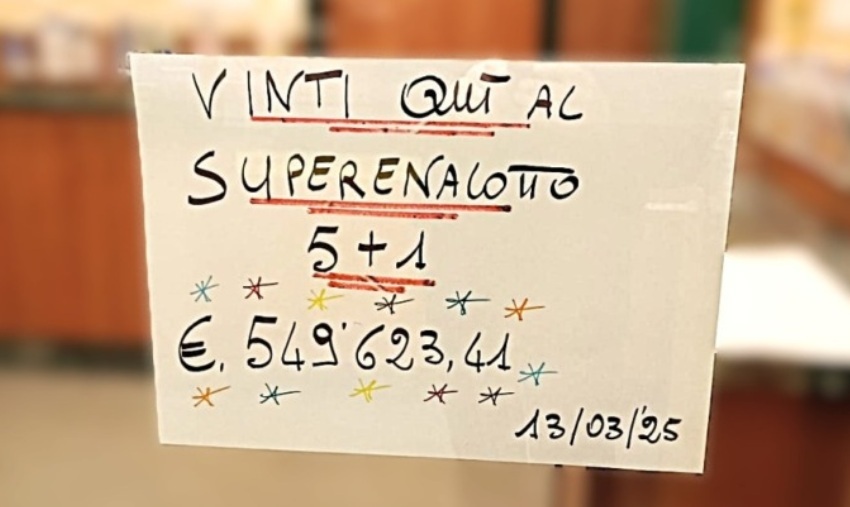 VINTI QUI AL
SUPERENALOTTO
5+1
€. 549'623,41
13/03/'25